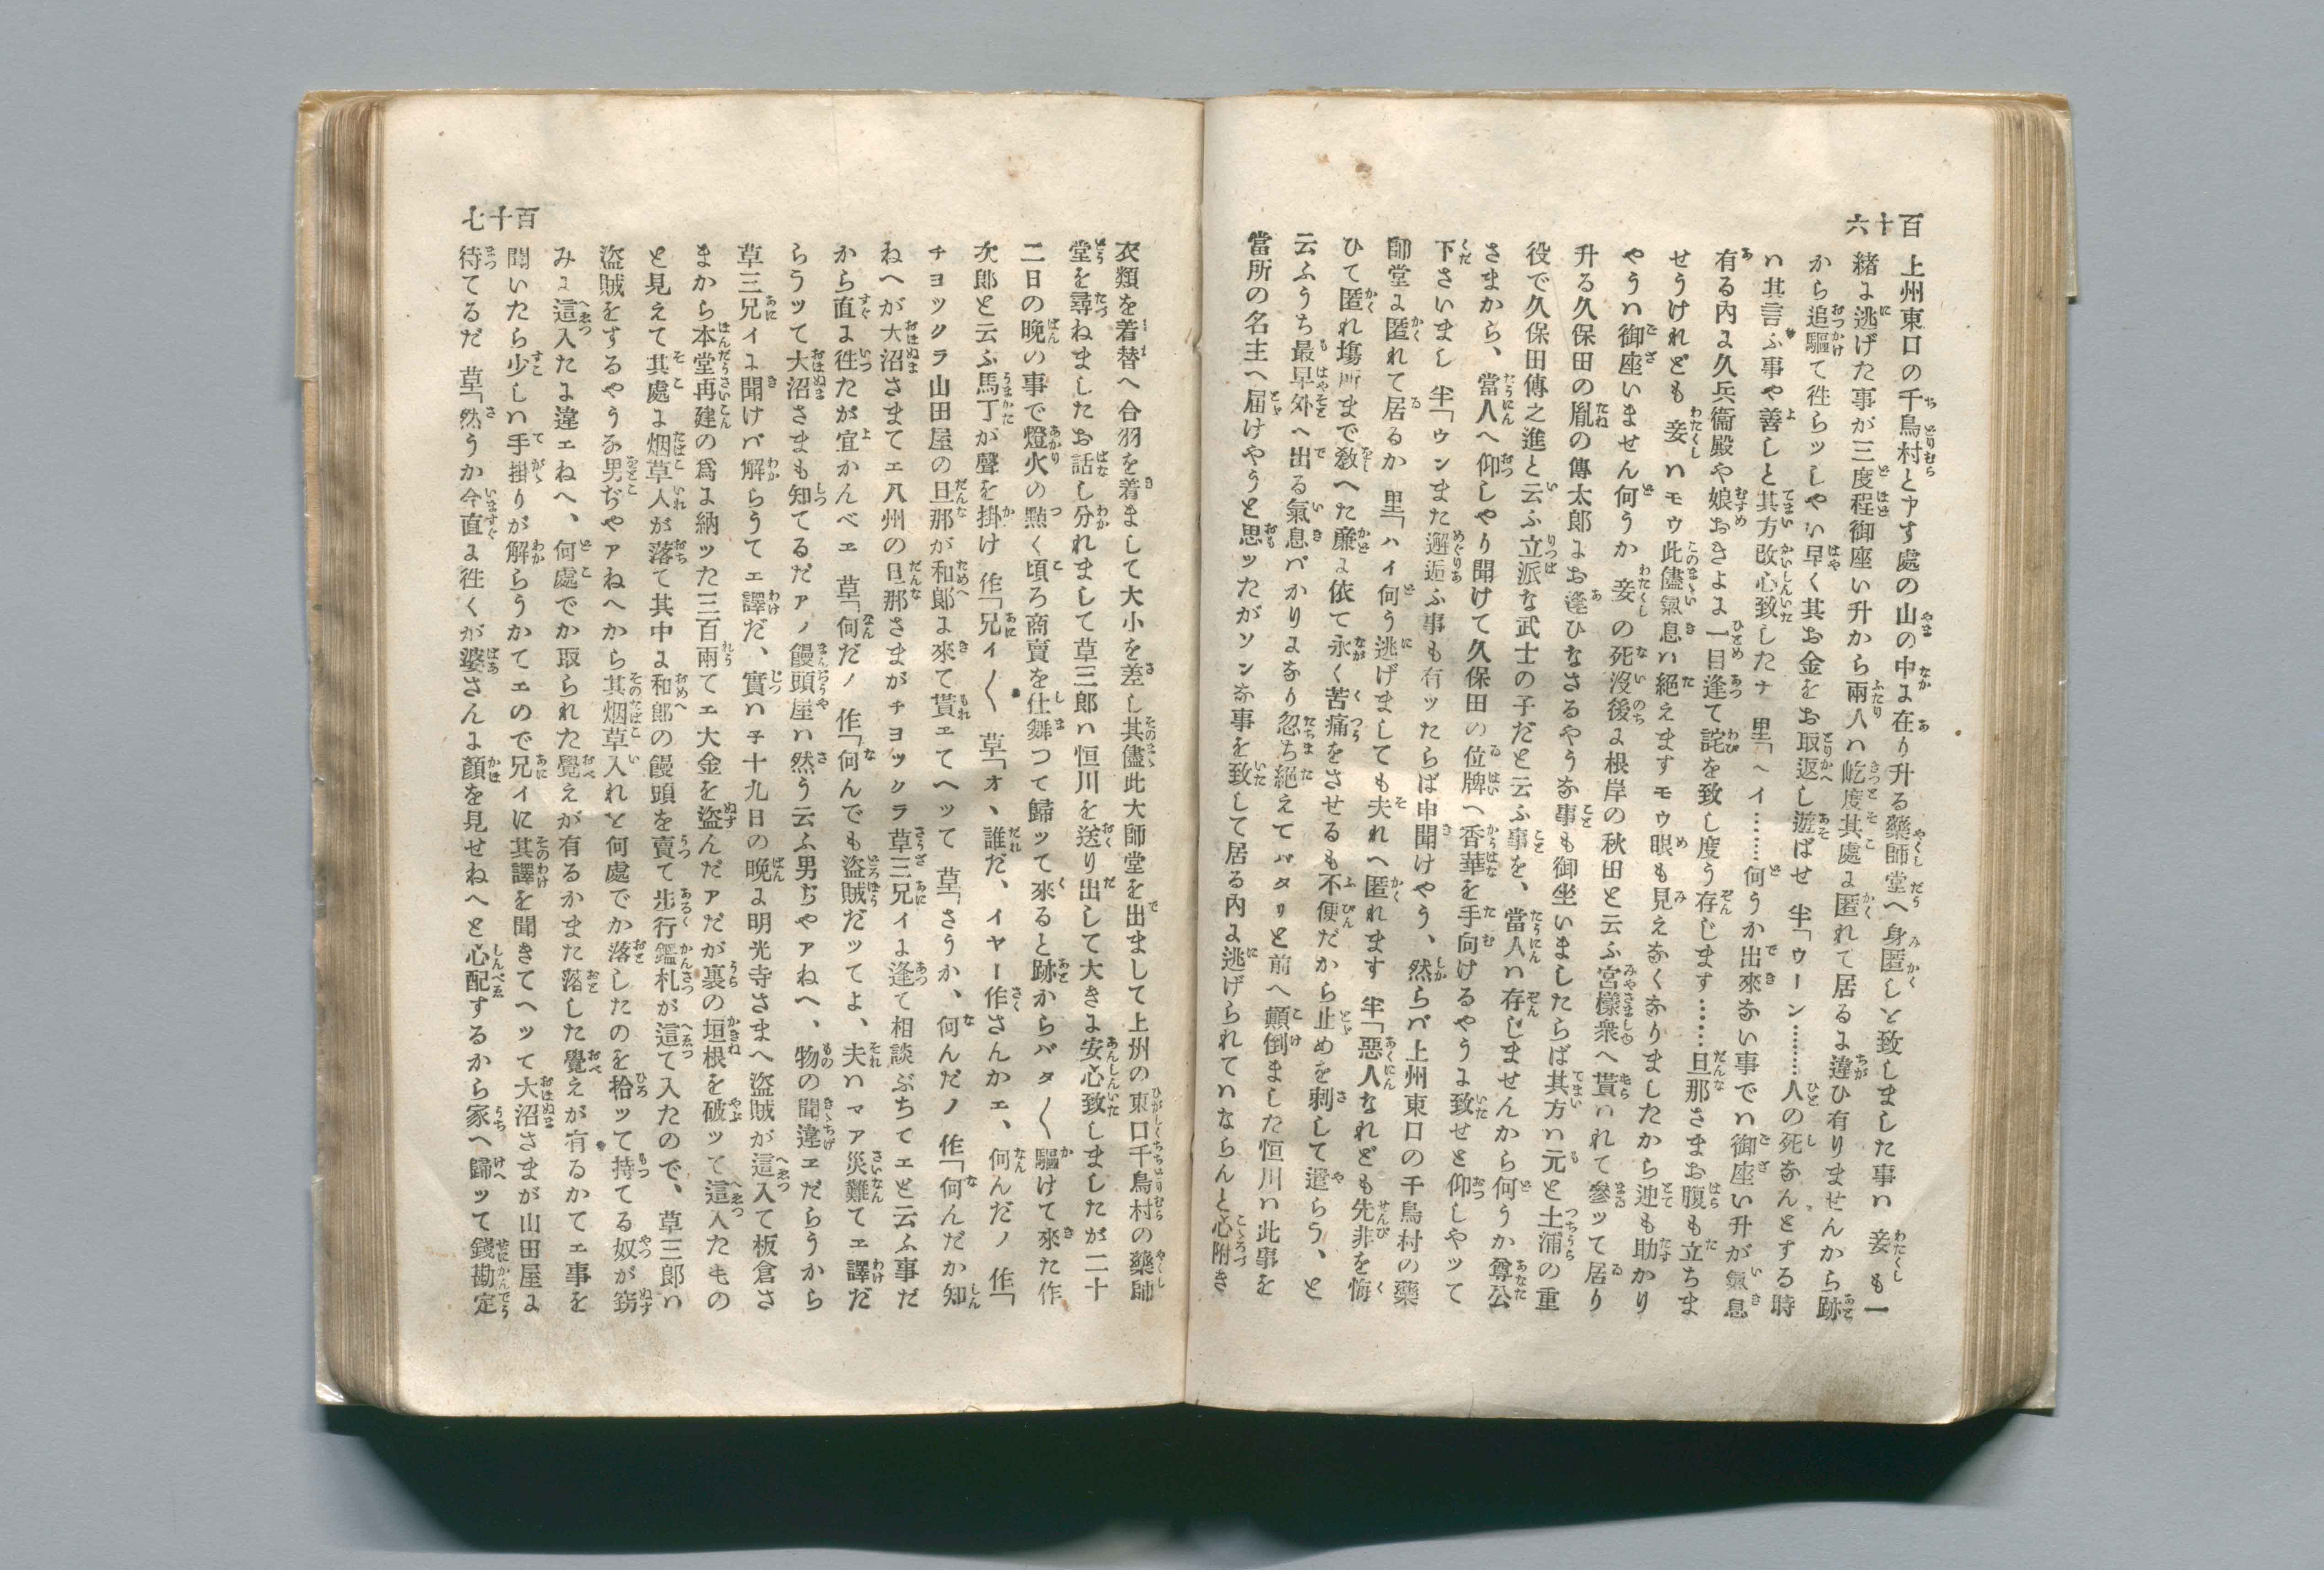 百十六
上州東口の千鳥村とヤす處の山の中に在り升る藥師堂へ身匿しと致しました事ハ妾も一
緒に逃げた事が三度程御座い升から兩人ハ屹度其處に匿れて居るに違ひ有りませんから跡
から追驅て徃らッしやい早く其お金をお取返し遊ばせ 半「ウーン………人の死なんとする時
ハ其言ふ事や善しと其方改心致したナ 里「ヘイ……何うか出來ない事でハ御座い升が氣息
有る内に久兵衞殿や娘おきよに一目逢て詫を致し度う存じます……旦那さまお腹も立ちま
せうけれども妾ハモウ此儘氣息ハ絕えますモウ眼も見えなくなりましたから迚も助かり
やうハ御座いません何うか妾の死沒後に根岸の秋田と云ふ宮樣衆へ貰ハれて參ッて居り
升る久保田の胤の傳太郎にお逢ひなさるやうな事も御坐いましたらば其方ハ元と土浦の重
役で久保田傳之進と云ふ立派な武士の子だと云ふ事を、當人ハ存じませんから何うか尊公
さまから、當人へ仰しやり聞けて久保田の位牌へ香華を手向けるやうに致せと仰しやッて
下さいまし 半「ウンまた邂逅ふ事も有ッたらば申聞けやう、然らバ上州東口の千鳥村の藥
師堂に匿れて居るか 里「ハイ何う逃げましても夫れへ匿れます 半「惡人なれども先非を悔
ひて匿れ塲所まで敎へた廉に依て永く苦痛をさせるも不便だから止めを剌して遣らう、と
云ふうち最早外へ出る氣息バかりになり忽ち絕えてバタリと前へ顚倒ました恒川ハ此事を
當所の名主へ届けやうと思ッたがソンな事を致して居る内に逃げられてハならんと心附き
百十七
衣類を着替へ合羽を着まして大小を差し其儘此大師堂を出まして上州の東口千鳥村の藥師
堂を尋ねましたお話し分れまして草三郎ハ恒川を送り出して大きに安心致しましたが二十
二日の晩の事で燈火の點く頃ろ商賣を仕舞つて歸ッて來ると跡からバタ〱驅けて來た作
次郎と云ふ馬丁が聲を掛け 作「兄イ〱 草「オヽ誰だ、イヤー作さんかエ、何んだノ 作「
チヨックラ山田屋の旦那が和郎に來て貰エてヘッて 草「さうか、何んだノ 作「何んだか知
ねへが大沼さまてエ八州の旦那さまがチヨックラ草三兄イに逢て相談ぶちてエと云ふ事だ
から直に徃たが宜かんべエ 草「何だノ 作「何んでも盜賊だッてよ、夫ハマア災難てエ譯だ
らうッて大沼さまも知てるだアノ饅頭屋ハ然う云ふ男ぢやアねへ、物の聞違エだらうから
草三兄イに聞けバ解らうてエ譯だ、實ハ子十九日の晩に明光寺さまへ盜賊が這入て板倉さ
まから本堂再建の爲に納ッた三百兩てエ大金を盜んだアだが裏の垣根を破ッて這入たもの
と見えて其處に烟草入が落て其中に和郎の饅頭を賣て步行鑑札が這て入たので、草三郎ハ
盜賊をするやうな男ぢやアねへから其烟草入れと何處でか落したのを拾ッて持てる奴が竊
みに這入たに違エねへ、何處でか取られた覺えが有るかまた落した覺えが有るかてエ事を
聞いたら少しハ手掛りが解らうかてエので兄イに其譯を聞きてヘッて大沼さまが山田屋に
待てるだ 草「然うか今直に徃くが婆さんに顏を見せねへと心配するから家へ歸ッて錢勘定